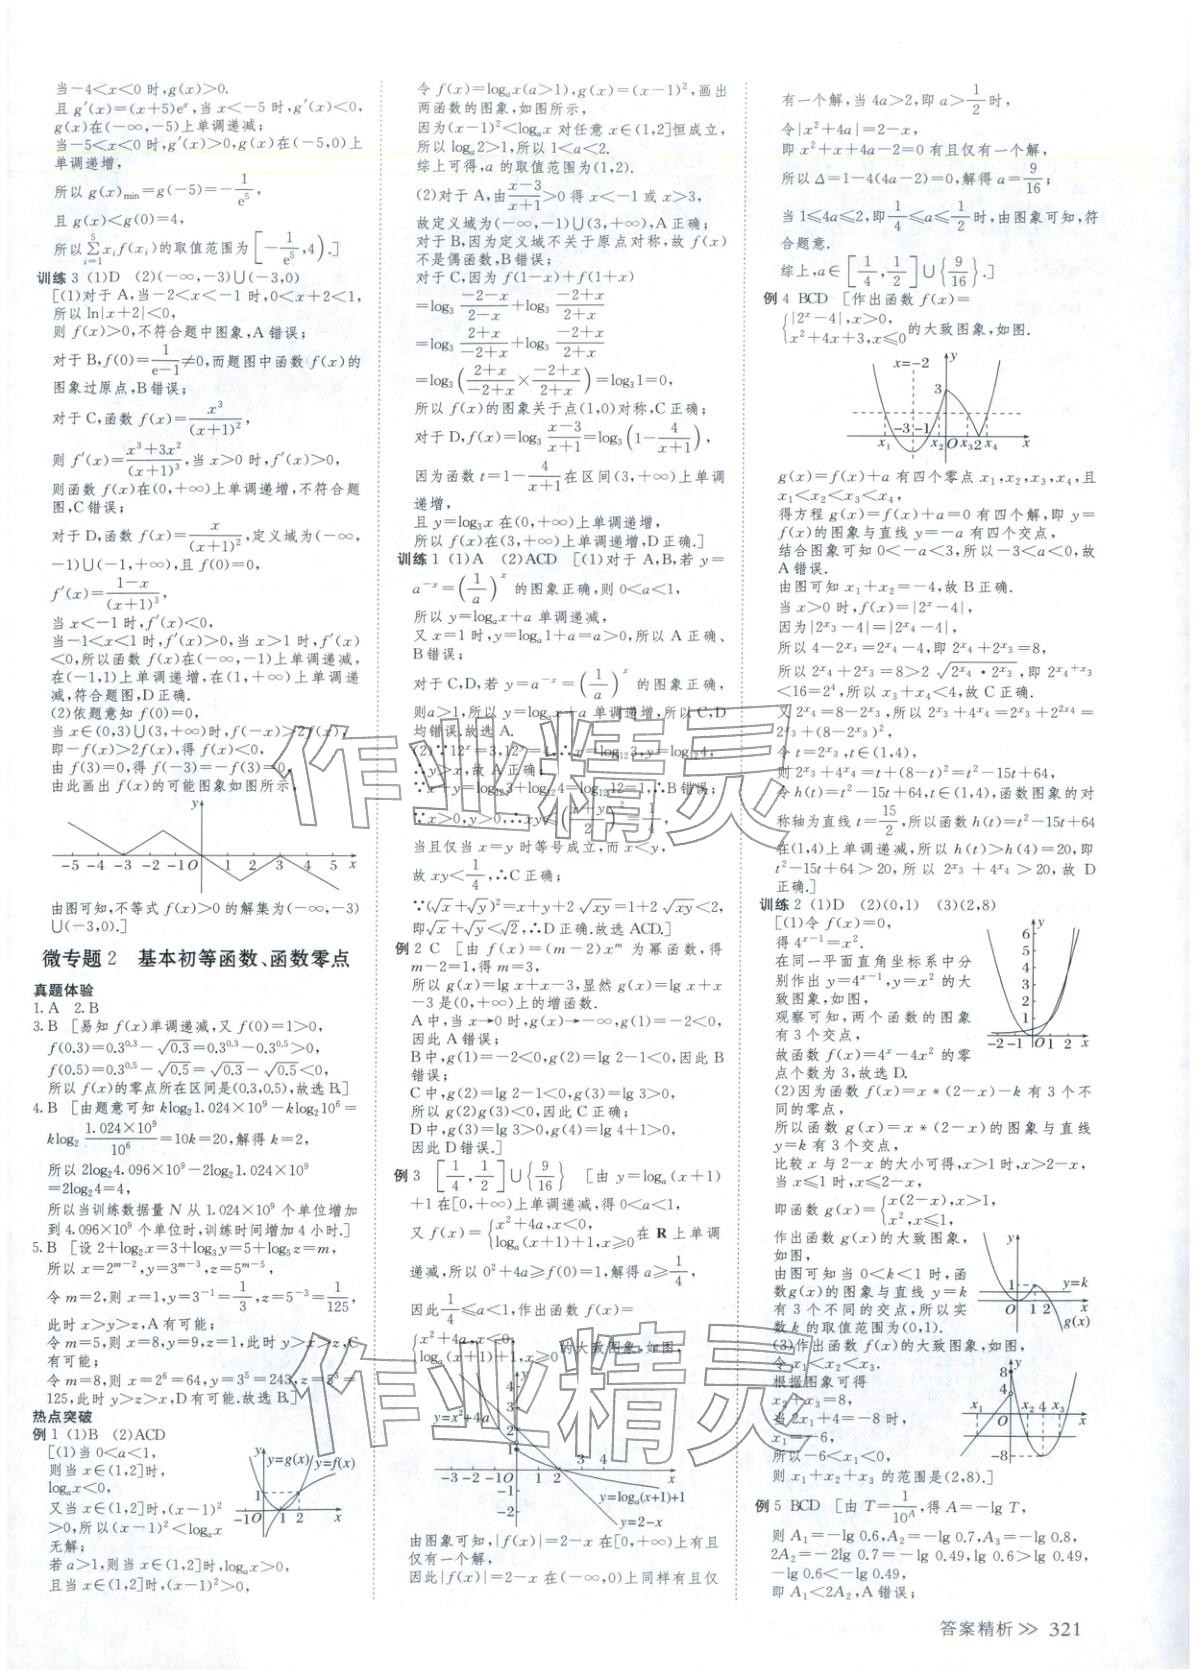 当-4<x<0时,g(x)>0.
且g′(x)=(x+5)eˣ,当x<-5时,g′(x)<0,
g(x)在(-∞,-5)上单调递减;
当-5<x<0时,g′(x)>0,g(x)在(-5,0)上
单调递增,
所以g(x)min=g(-5)=-1/e⁵,
且g(x)<g(0)=4,
所以∑(i=1→5)xᵢf(xᵢ)的取值范围为[-1/e⁵,4).]
训练3 (1)D (2)(-∞,-3)∪(-3,0)
[(1)对于A,当-2<x<-1时,0<x+2<1,
所以ln|x+2|<0,
则f(x)>0,不符合题中图象,A错误;
对于B,f(0)=1/(e-1)≠0,而题图中函数f(x)的
图象过原点,B错误;
对于C,函数f(x)=x³/(x+1)²,
则f′(x)=(x³+3x²)/(x+1)³,当x>0时,f′(x)>0,
则函数f(x)在(0,+∞)上单调递增,不符合题
图,C错误;
对于D,函数f(x)=x/(x+1)²,定义域为(-∞,
-1)∪(-1,+∞),且f(0)=0,
f′(x)=(1-x)/(x+1)³,
当x<-1时,f′(x)<0,
当-1<x<1时,f′(x)>0,当x>1时,f′(x)
<0,所以函数f(x)在(-∞,-1)上单调递减,
在(-1,1)上单调递增,在(1,+∞)上单调递
减,符合题图,D正确.
(2)依题意知f(0)=0,
当x∈(0,3)∪(3,+∞)时,f(-x)>2f(x),
即-f(x)>2f(x),得f(x)<0,
由f(3)=0,得f(-3)=-f(3)=0,
由此画出f(x)的可能图象如图所示,
y
-5 -4 -3 -2 -1 O 1 2 3 4 5 x
由图可知,不等式f(x)>0的解集为(-∞,-3)
∪(-3,0).]
微专题2 基本初等函数、函数零点
真题体验
1.A 2.B
3.B [易知f(x)单调递减,又f(0)=1>0,
f(0.3)=0.3^0.3-√0.3=0.3^0.3-0.3^0.5>0,
f(0.5)=0.3^0.5-√0.5=√0.3-√0.5<0,
所以f(x)的零点所在区间是(0.3,0.5),故选B.]
4.B [由题意可知klog₂1.024×10⁹-klog₂10⁶=
klog₂(1.024×10⁹/10⁶)=10k=20,解得k=2,
所以2log₂4.096×10⁹-2log₂1.024×10⁹
=2log₂4=4,
所以当训练数据量N从1.024×10⁹个单位增加
到4.096×10⁹个单位时,训练时间增加4小时.]
5.B [设2+log₂x=3+log₃y=5+log₅z=m,
所以x=2^(m-2),y=3^(m-3),z=5^(m-5),
令m=2,则x=1,y=3⁻¹=1/3,z=5⁻³=1/125,
此时x>y>z,A有可能;
令m=5,则x=8,y=9,z=1,此时y>x>z,C
有可能;
令m=8,则x=2⁶=64,y=3⁵=243,z=5³=
125,此时y>z>x,D有可能.故选B.]
热点突破
例1 (1)B (2)ACD
[(1)当0<a<1,
则当x∈(1,2]时,
logₐx<0,
又当x∈(1,2]时,(x-1)²
>0,所以(x-1)²<logₐx
无解;
y y=g(x) y=f(x)
1
-1 O 1 2 x
若a>1,则当x∈(1,2]时,logₐx>0,
且当x∈(1,2]时,(x-1)²>0,
令f(x)=logₐx(a>1),g(x)=(x-1)²,画出
两函数的图象,如图所示,
因为(x-1)²<logₐx对任意x∈(1,2]恒成立,
所以logₐ2>1,所以1<a<2.
综上可得,a的取值范围为(1,2).
(2)对于A,由(x-3)/(x+1)>0得x<-1或x>3,
故定义域为(-∞,-1)∪(3,+∞),A正确;
对于B,因为定义域不关于原点对称,故f(x)
不是偶函数,B错误;
对于C,因为f(1-x)+f(1+x)
=log₃(-2-x)/(2-x)+log₃(-2+x)/(2+x)
=log₃(2+x)/(-2+x)+log₃(-2+x)/(2+x)
=log₃((2+x)/(-2+x)×(-2+x)/(2+x))=log₃1=0,
所以f(x)的图象关于点(1,0)对称,C正确;
对于D,f(x)=log₃(x-3)/(x+1)=log₃(1-4/(x+1)),
因为函数t=1-4/(x+1)在区间(3,+∞)上单调
递增,
且y=log₃x在(0,+∞)上单调递增,
所以f(x)在(3,+∞)上单调递增,D正确.]
训练1 (1)A (2)ACD [(1)对于A,B,若y=
a⁻ˣ=(1/a)ˣ的图象正确,则0<a<1,
所以y=logₐx+a单调递减,
又x=1时,y=logₐ1+a=a>0,所以A正确、
B错误;
对于C,D,若y=a⁻ˣ=(1/a)ˣ的图象正确,
则a>1,所以y=logₐx+a单调递增,所以C,D
均错误.故选A.
(2)∵12ˣ=3,12ʸ=4,∴x=log₁₂3,y=log₁₂4,
∴y>x,故A正确;
∵x+y=log₁₂3+log₁₂4=log₁₂12=1,∴B错误;
∵x>0,y>0,∴xy≤((x+y)/2)²=1/4,
当且仅当x=y时等号成立,而x<y,
故xy<1/4,∴C正确;
∵(√x+√y)²=x+y+2√xy=1+2√xy<2,
即√x+√y<√2,∴D正确.故选ACD.]
例2 C [由f(x)=(m-2)xᵐ为幂函数,得
m-2=1,得m=3,
所以g(x)=lg x+x-3,显然g(x)=lg x+x
-3是(0,+∞)上的增函数.
A中,当x→0时,g(x)→-∞,g(1)=-2<0,
因此A错误;
B中,g(1)=-2<0,g(2)=lg 2-1<0,因此B
错误;
C中,g(2)=lg 2-1<0,g(3)=lg 3>0,
所以g(2)g(3)<0,因此C正确;
D中,g(3)=lg 3>0,g(4)=lg 4+1>0,
因此D错误.]
例3 [1/4,1/2]∪{9/16} [由y=logₐ(x+1)
+1在[0,+∞)上单调递减,得0<a<1,
又f(x)={x²+4a,x<0, logₐ(x+1)+1,x≥0 在R上单调
递减,所以0²+4a≥f(0)=1,解得a≥1/4,
因此1/4≤a<1,作出函数f(x)=
{x²+4a,x<0, logₐ(x+1)+1,x≥0 的大致图象,如图,
4
3
y=x²+4a 2
1
-3 -2 -1 O 1 2 3 4 x
-1
-2
y=logₐ(x+1)+1
y=2-x
由图象可知,|f(x)|=2-x在[0,+∞)上有且
仅有一个解,
因此|f(x)|=2-x在(-∞,0)上同样有且仅
有一个解,当4a>2,即a>1/2时,
令|x²+4a|=2-x,
即x²+x+4a-2=0有且仅有一个解,
所以Δ=1-4(4a-2)=0,解得a=9/16;
当1≤4a≤2,即1/4≤a≤1/2时,由图象可知,符
合题意.
综上,a∈[1/4,1/2]∪{9/16}.]
例4 BCD [作出函数f(x)=
{|2ˣ-4|,x>0, x²+4x+3,x≤0 的大致图象,如图.
x=-2 y
3
-3 -1
x₁ x₂ O x₃ 2 x₄ x
g(x)=f(x)+a有四个零点x₁,x₂,x₃,x₄,且
x₁<x₂<x₃<x₄,
得方程g(x)=f(x)+a=0有四个解,即y=
f(x)的图象与直线y=-a有四个交点,
结合图象可知0<-a<3,所以-3<a<0,故
A错误.
由图可知x₁+x₂=-4,故B正确.
当x>0时,f(x)=|2ˣ-4|,
因为|2^x₃-4|=|2^x₄-4|,
所以4-2^x₃=2^x₄-4,即2^x₄+2^x₃=8,
所以2^x₄+2^x₃=8>2√(2^x₄·2^x₃),即2^(x₄+x₃)
<16=2⁴,所以x₃+x₄<4,故C正确.
又2^x₄=8-2^x₃,所以2^x₃+4^x₄=2^x₃+2^(2x₄)=
2^x₃+(8-2^x₃)²,
令t=2^x₃,t∈(1,4),
则2^x₃+4^x₄=t+(8-t)²=t²-15t+64,
令h(t)=t²-15t+64,t∈(1,4),函数图象的对
称轴为直线t=15/2,所以函数h(t)=t²-15t+64
在(1,4)上单调递减,所以h(t)>h(4)=20,即
t²-15t+64>20,故2^x₃+4^x₄>20,故D
正确.]
训练2 (1)D (2)(0,1) (3)(2,8)
[(1)令f(x)=0,
得4^(x-1)=x².
在同一平面直角坐标系中分
别作出y=4^(x-1),y=x²的大
致图象,如图,
观察可知,两个函数的图象
有3个交点,
故函数f(x)=4ˣ-4x²的零
点个数为3,故选D.
y
6
5
4
3
2
1
-2 -1 O 1 2 x
(2)因为函数f(x)=x*(2-x)-k有3个不
同的零点,
所以函数g(x)=x*(2-x)的图象与直线
y=k有3个交点,
比较x与2-x的大小可得,x>1时,x>2-x,
当x≤1时,x≤2-x,
即函数g(x)={x(2-x),x>1, x²,x≤1,
作出函数g(x)的大致图象,
如图,
由图可知当0<k<1时,函
数g(x)的图象与直线y=k
有3个不同的交点,所以实
数k的取值范围为(0,1).
y
1 y=k
O 1 2 x
g(x)
(3)作出函数f(x)的大致图象,如图,
令x₁<x₂<x₃,
根据图象可得
x₂+x₃=8,
当2x₁+4=-8时,
x₁=-6,
所以-6<x₁<0,
则x₁+x₂+x₃的范围是(2,8).]
y
8
4
x₁ x₂ 4 x₃
O x
-8
例5 BCD [由T=1/10ᴬ,得A=-lg T,
则A₁=-lg 0.6,A₂=-lg 0.7,A₃=-lg 0.8,
2A₂=-2lg 0.7=-lg 0.49,lg 0.6>lg 0.49,
-lg 0.6<-lg 0.49,
即A₁<2A₂,A错误;
作业精灵
作业精灵
答案精析 >> 321